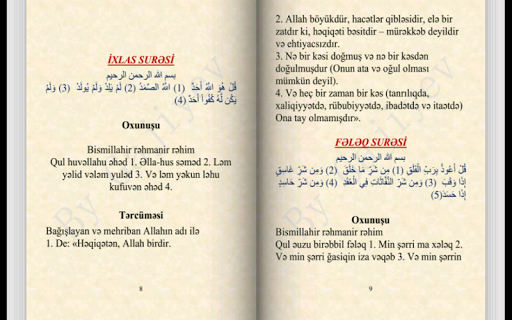 İXLAS SURƏSİ
بسم الله الرحمن الرحيم
قُلْ هُوَ اللَّهُ أَحَدٌ (1) اللَّهُ الصَّمَدُ (2) لَمْ يَلِدْ وَلَمْ يُولَدْ (3) وَلَمْ
يَكُن لَّهُ كُفُوًا أَحَدٌ (4)
Oxunuşu
Bismillahir rəhmanir rəhim
Qul huvəllahu əhəd 1. Əlla-hus səməd 2. Ləm
yəlid vələm yuləd 3. Və ləm yəkun ləhu
kufuvən əhəd 4.
Tərcüməsi
Bağışlayan və mehriban Allahın adı ilə
1. De: «Həqiqətən, Allah birdir.
8
2. Allah böyükdür, hacətlər qibləsidir, elə bir
zatdır ki, həqiqəti bəsitdir – mürəkkəb deyildir
və ehtiyacsızdır.
3. Nə bir kəsi doğmuş və nə bir kəsdən
doğulmuşdur (Onun ata və oğul olması
mümkün deyil).
4. Və heç bir zaman bir kəs (tanrılıqda,
xaliqiyyətdə, rübubiyyətdə, ibadətdə və itaətdə)
Ona tay olmamışdır».
FƏLƏQ SURƏSİ
بسم الله الرحمن الرحيم
قُلْ أَعُوذُ بِرَبِّ الْفَلَقِ (1) مِن شَرِّ مَا خَلَقَ (2) وَمِن شَرِّ غَاسِقٍ
إِذَا وَقَبَ (3) وَمِن شَرِّ النَّفَّاثَاتِ فِي الْعُقَدِ (4) وَمِن شَرِّ حَاسِدٍ
إِذَا حَسَدَ (5)
Oxunuşu
Bismillahir rəhmanir rəhim
Qul əuzu birəbbil fələq 1. Min şərri ma xələq 2.
Və min şərri ğasiqin iza vəqəb 3. Və min şərrin
9